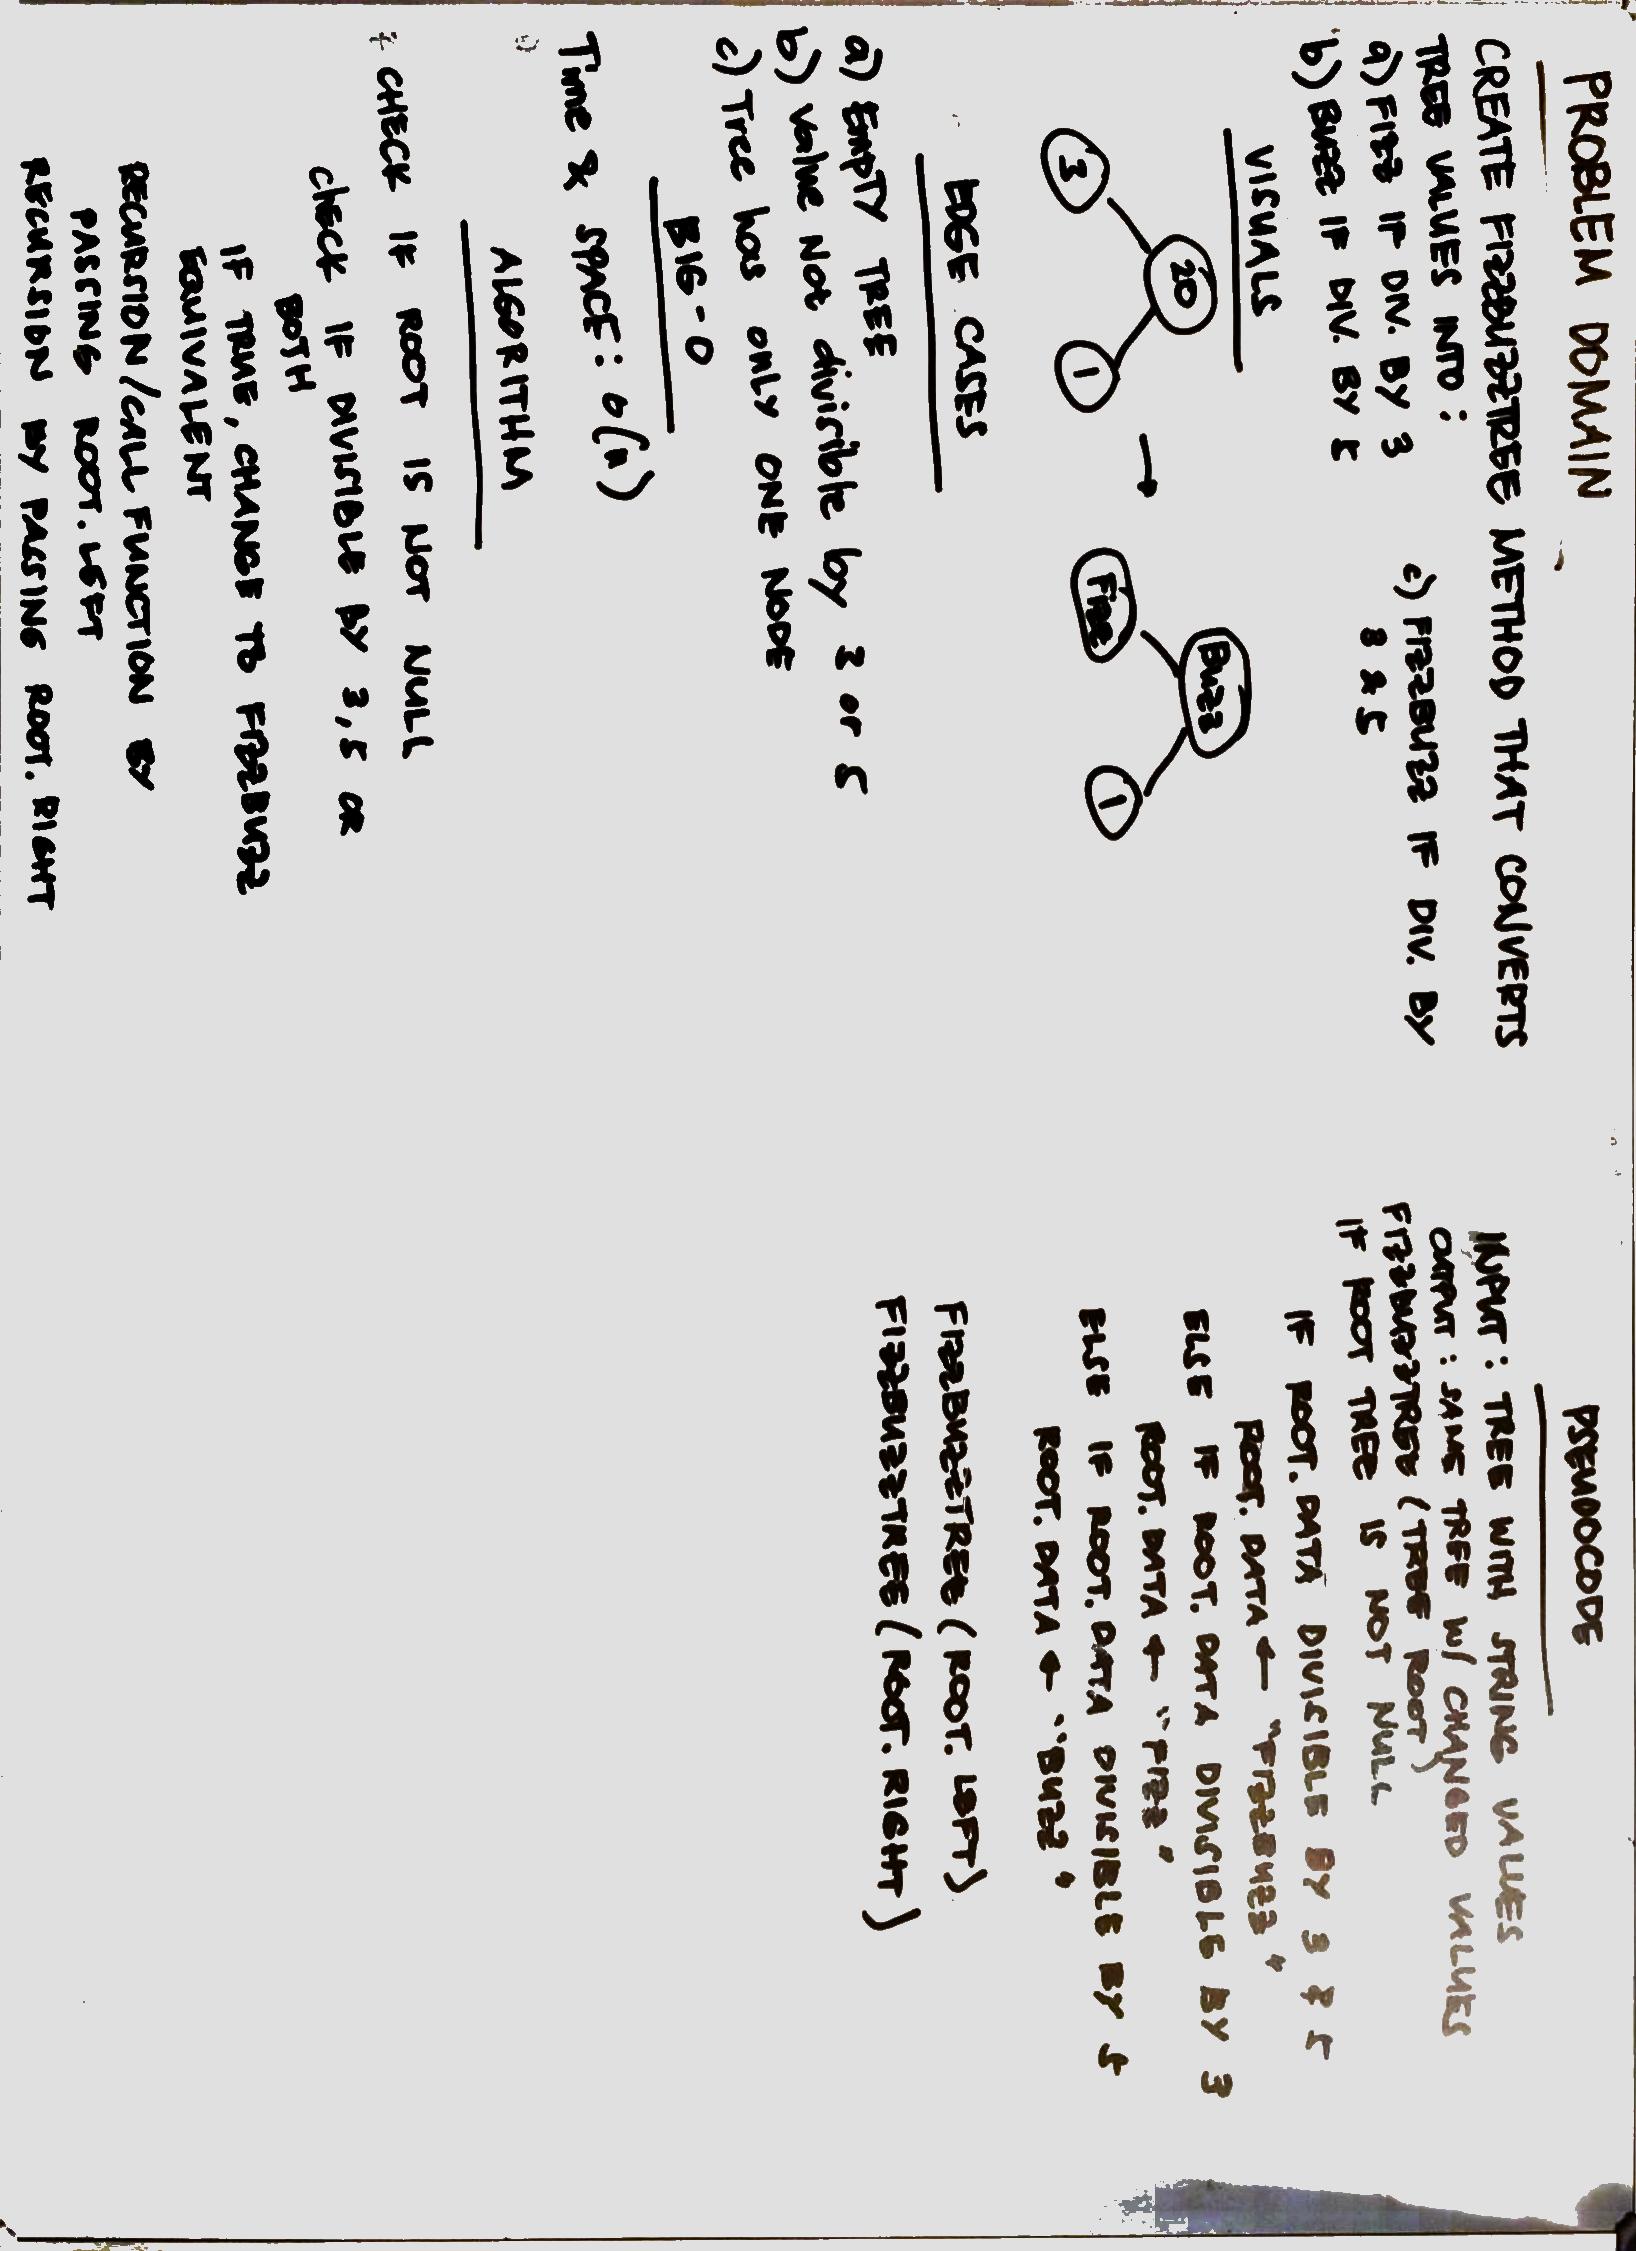 PROBLEM DOMAIN
CREATE FIZZBUZZTREE METHOD THAT CONVERTS
TREE VALUES INTO:
a) FIZZ IF DIV. BY 3
b) BUZZ IF DIV. BY 5
c) FIZZBUZZ IF DIV. BY
3 & 5
VISUALS
20
3
1
→
Buzz
Fizz
1
EDGE CASES
a) EmpTY TREE
b) Value Not divisible by 3 or 5
c) Tree has only ONE NODE
BIG-O
Time & SPACE: O(n)
ALGORITHM
CHECK IF ROOT IS NOT NULL
ChECK IF DIVISIBLE BY 3,5 OR
BOTH
IF TRUE, CHANGE TO FIZZBUZZ
EQUIVALENT
RECURSION/CALL FUNCTION BY
PASSING ROOT.LEFT
RECURSION BY PASSING ROOT.RIGHT
PSEUDOCODE
INPUT: TREE WITH STRING VALUES
OUTPUT: SAME TREE W/ CHANGED VALUES
FIZZBUZZTREE (TREE ROOT)
IF ROOT TREE IS NOT NULL
IF ROOT.DATA DIVISIBLE BY 3 & 5
ROOT.DATA ← "FIZZBUZZ"
ELSE IF ROOT.DATA DIVISIBLE BY 3
ROOT.DATA ← "FIZZ"
ELSE IF ROOT.DATA DIVISIBLE BY 5
ROOT.DATA ← "BUZZ"
FIZZBUZZTREE (ROOT.LEFT)
FIZZBUZZTREE (ROOT.RIGHT)